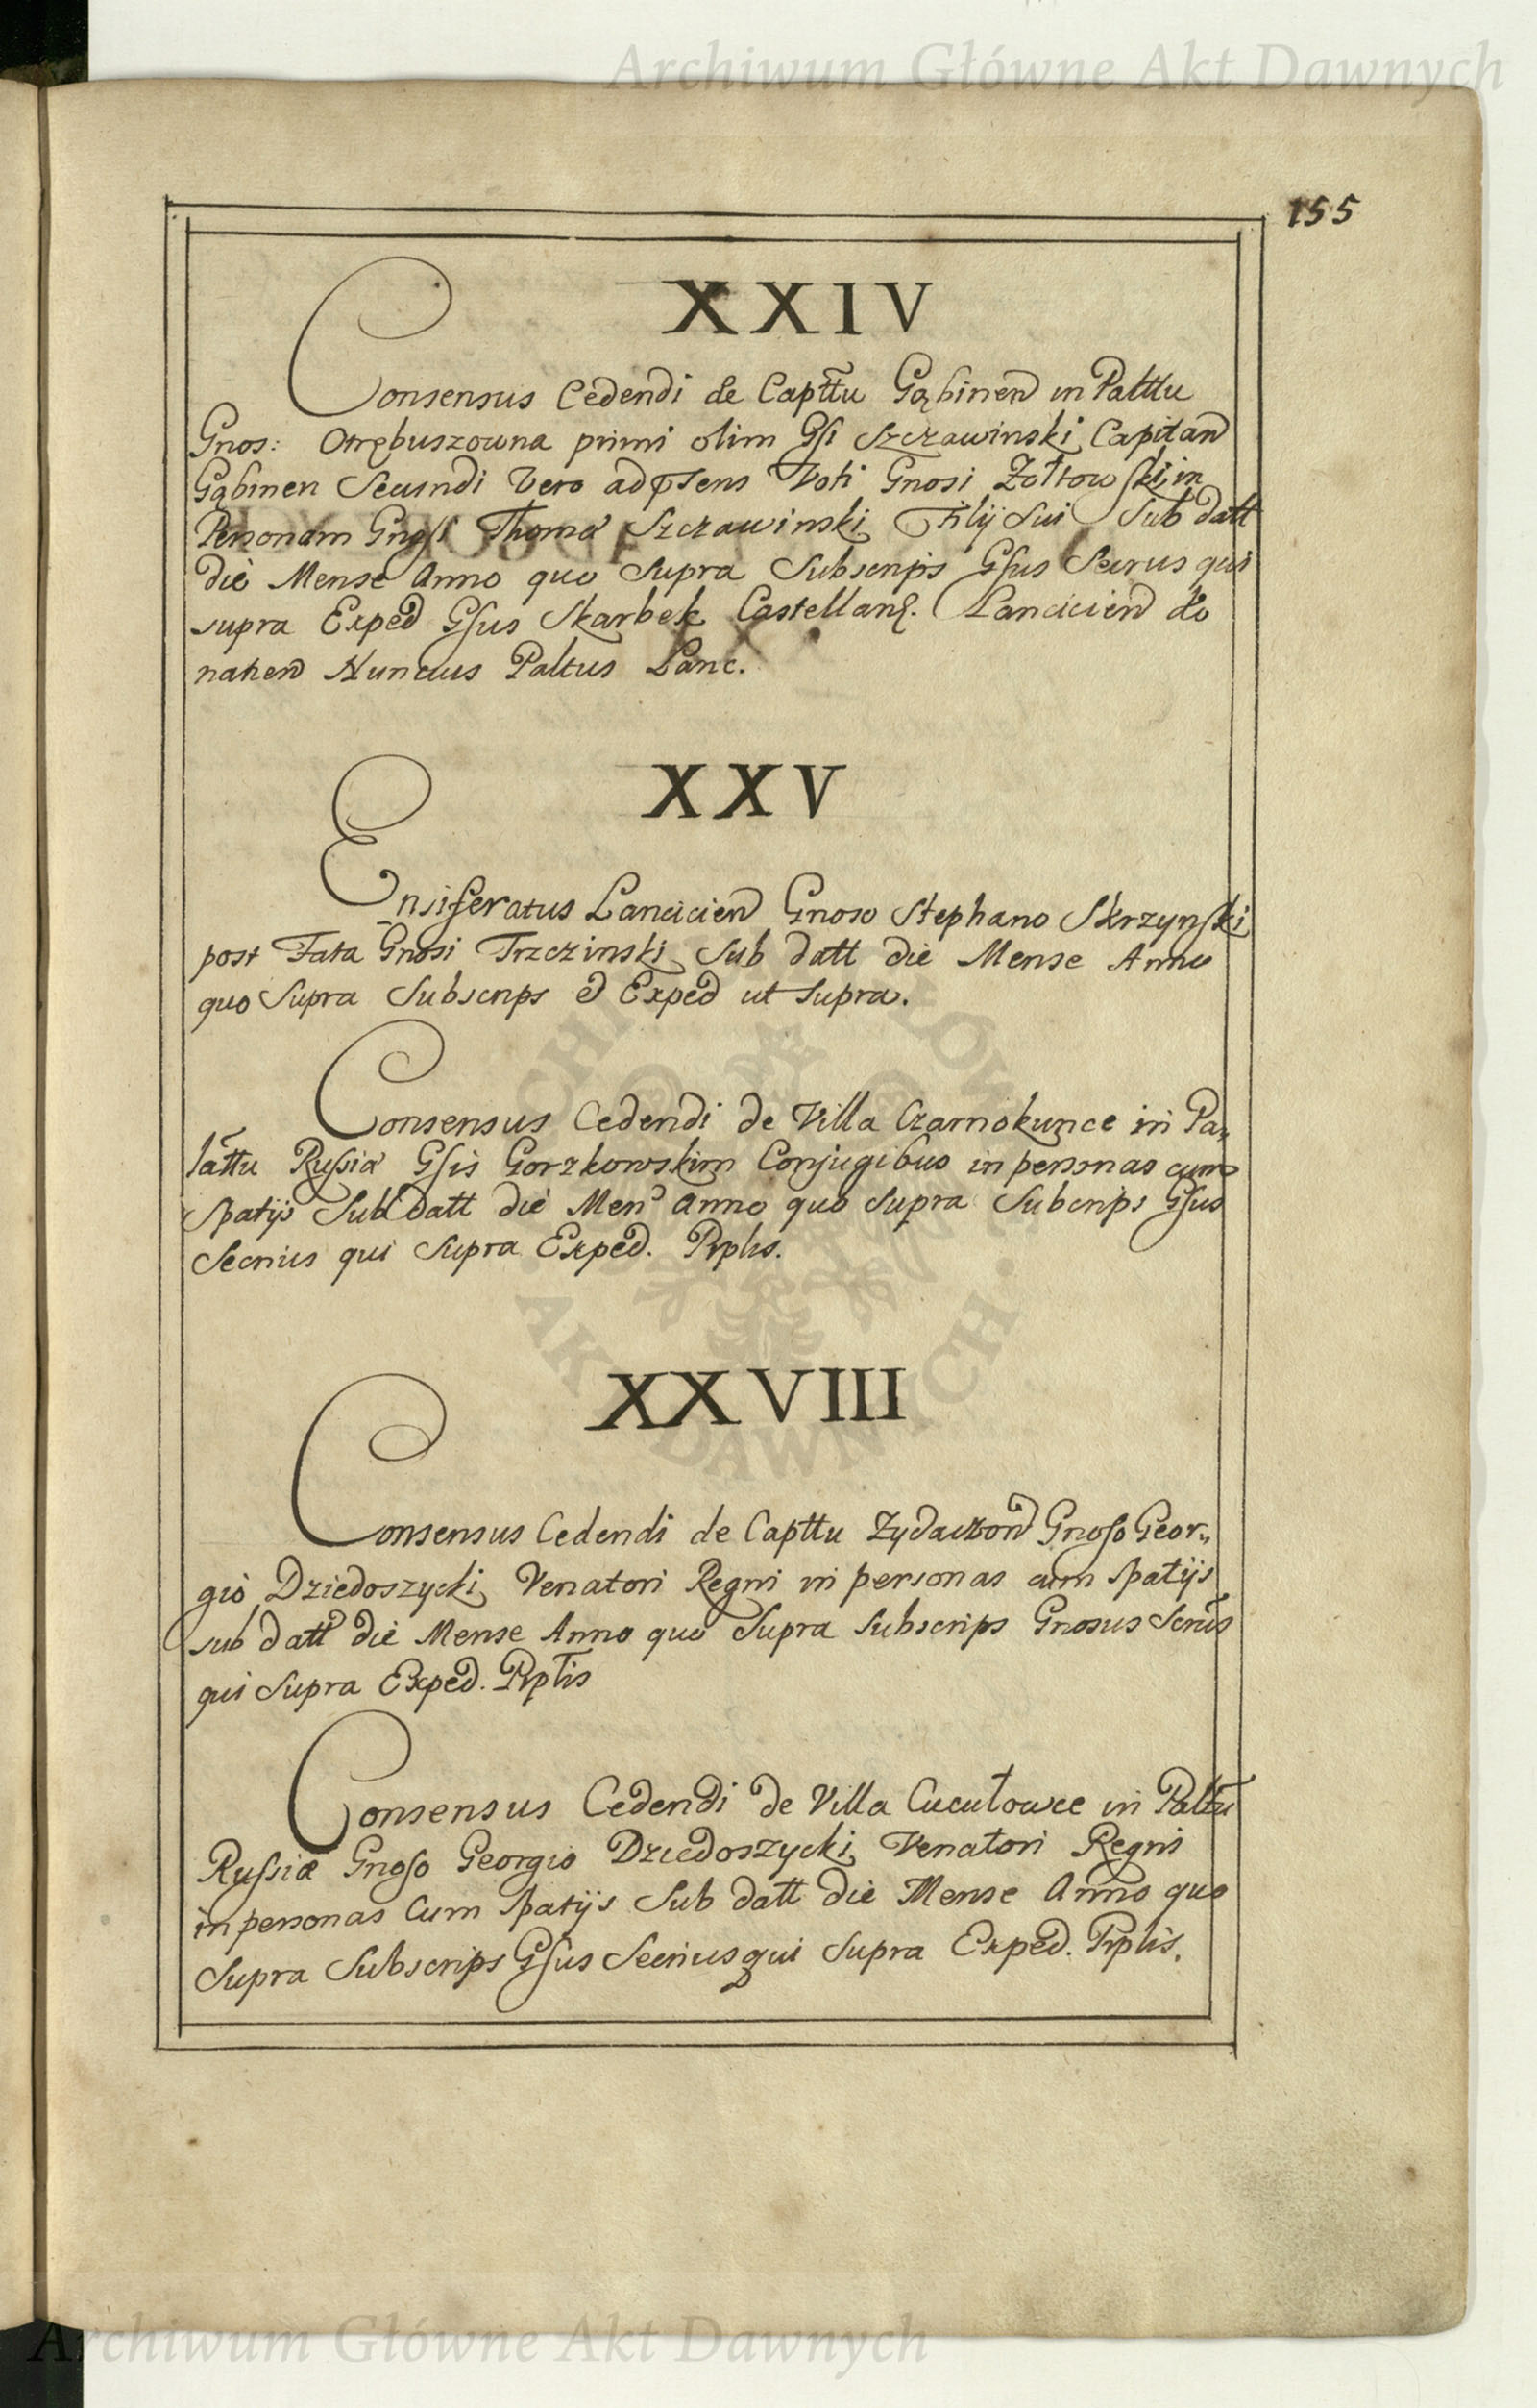 Archiwum Główne Akt Dawnych
155
XXIV
Consensus Cedendi de Capttu Gąbinen in Palttu
Gnos: Otrębuszowna primi olim Gsi Szczawinski Capitan
Gąbinen Secundi Vero adpsens Voti Gnosi Zołtowski in
Personam Gnosi Thomæ Szczawinski Filij Sui Sub datt
die Mense Anno quo Supra Subscrips Gsus Secrus qui
supra Exped Gsus Skarbek Castellan. Lancicien do
natien Nuncius Paltus Lanc.
XXV
Ensiferatus Lancicien Gnoso Stephano Skrzynski
post Fata Gnosi Trzczinski Sub datt die Mense Anno
quo Supra Subscrips & Exped ut Supra.
Consensus Cedendi de Villa Czarnokunce in Pa„
lattu Russiæ Gsis Gorzkowskim Conjugibus in personas cum
Spatijs Sub datt die Men Anno quo Supra Subcrips Gsus
Secrius qui Supra Exped. Rptis.
XXVIII
Consensus Cedendi de Capttu Zydaczow Gnoso Geor„
gio Dziedoszycki Venatori Regni in personas cum Spatijs
sub datt die Mense Anno quo Supra Subscrips Gnosus Scrius
qui Supra Exped. Rptis
Consensus Cedendi de Villa Cucułowce in Palttu
Russiæ Gnoso Georgio Dziedoszycki Venatori Regni
in personas Cum Spatijs Sub datt die Mense Anno quo
Supra Subscrips Gsus Secrius qui Supra Exped. Rptis.
ARCHIWUM GŁÓWNE AKT DAWNYCH
Archiwum Główne Akt Dawnych